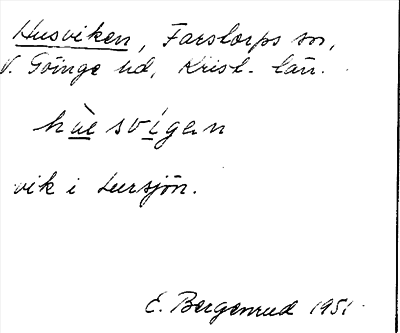 Husviken, Farstorps sn,
V. Göinge hd, Krist. län.
hùe svígan
vik i Lursjön.
E. Bergenrud 1951